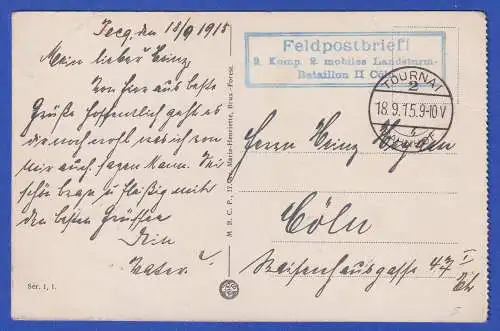 Pecq, den 18/9 1915
Mein lieber Heinz
Von hier aus beste
Grüße hoffentlich geht es
dir noch wohl was ich von
mir auch sagen kann. Sei
schön brav u fleißig mit
den besten Grüßen
Dein
Vater
Sér. 1, 1.
M. B. C. P., 17, Gal. Marie-Henriette, Brux.-Forest.
Feldpostbrief!
2. Komp. 2. mobiles Landsturm-
Bataillon II Cöln
TOURNAI
2
18.9.15.9-10V
4
Herrn Heinz
Cöln
Waisenhausgasse 47 I